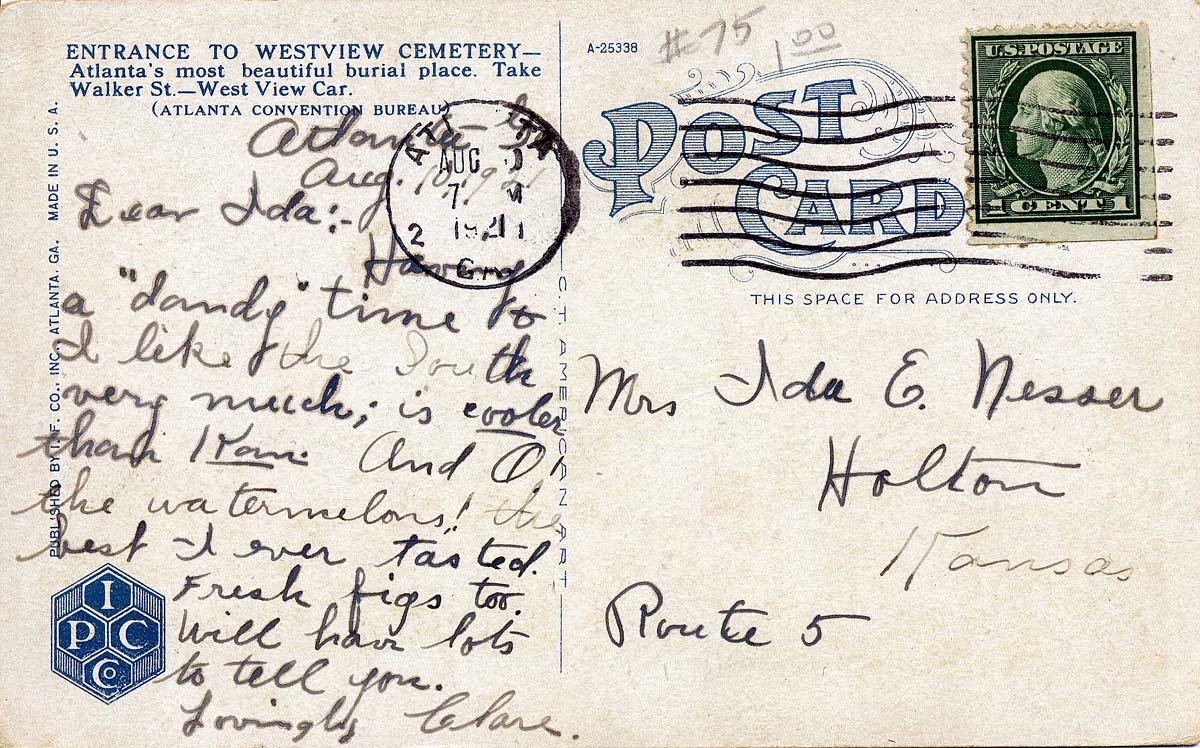 ENTRANCE TO WESTVIEW CEMETERY—
Atlanta's most beautiful burial place. Take
Walker St.—West View Car.
(ATLANTA CONVENTION BUREAU)
Atlanta Ga
Aug. 10, 1921
Dear Ida:-
Having
a "dandy" time &
I like the South
very much; is cooler
than Kan. And O!
the watermelons! the
best I ever tasted.
Fresh figs too.
Will have lots
to tell you.
Lovingly Clare.
PUBLISHED BY I. F. CO., INC., ATLANTA, GA. MADE IN U. S. A.
I P C Co
C. T. AMERICAN ART
A-25338
#75
1.00
POST CARD
THIS SPACE FOR ADDRESS ONLY.
U.S. POSTAGE
1 CENT 1
AUG
7 M
1921
2
Mrs Ida E. Nesser
Holton
Kansas
Route 5